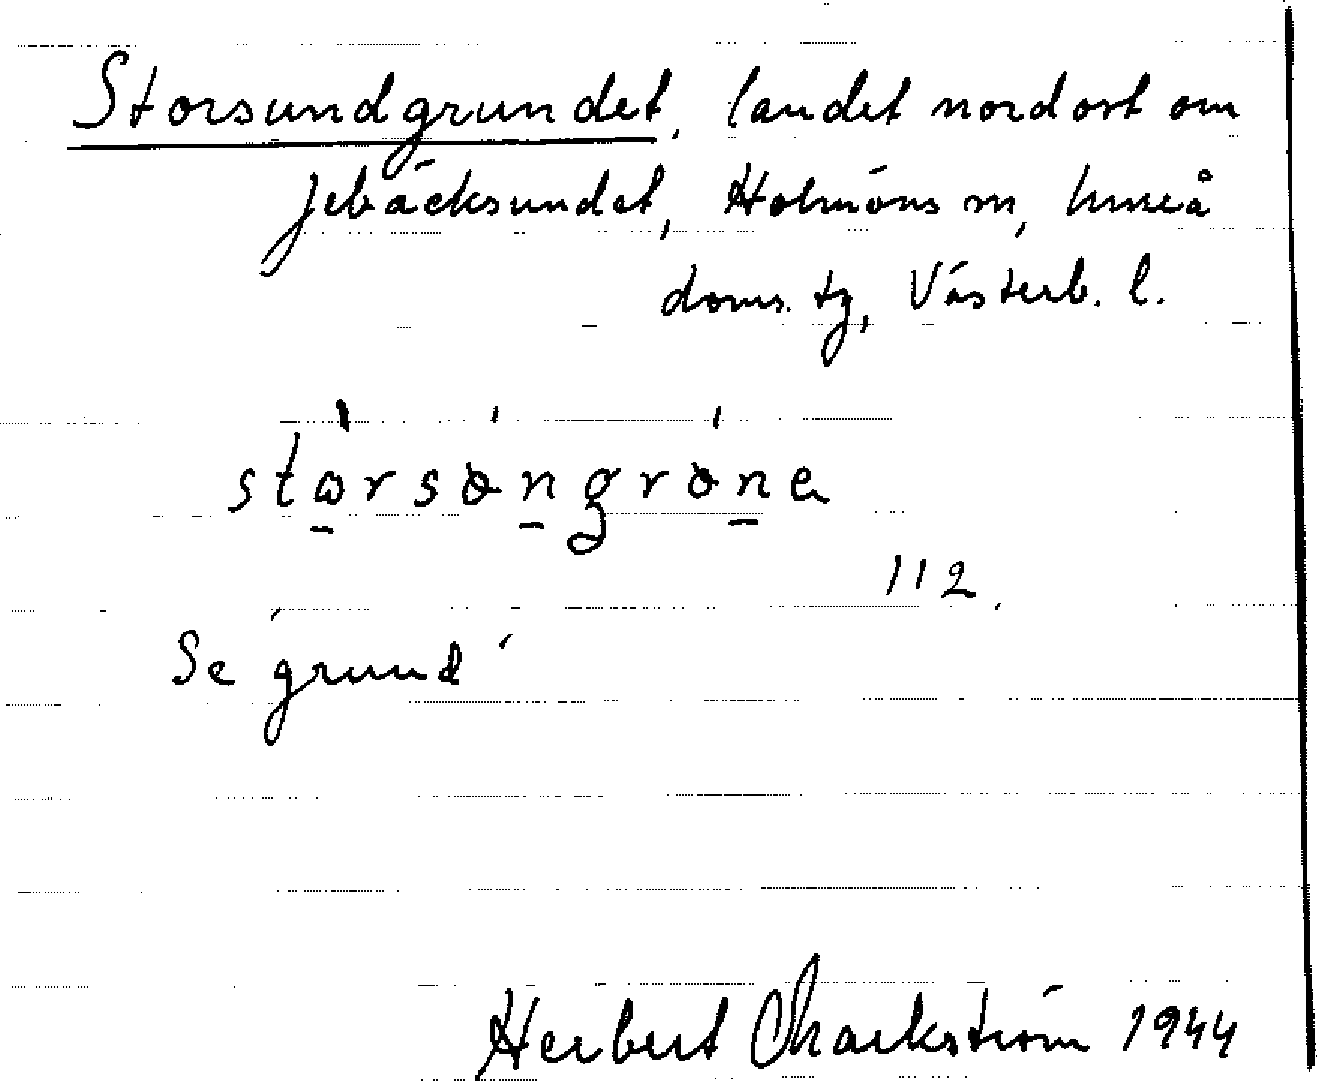 Storsundgrundet, landet nordost om
Jebäcksundet, Holmöns sn, Umeå
doms. tg, Västerb. l.
112.
Se grund
Herbert Markström 1944